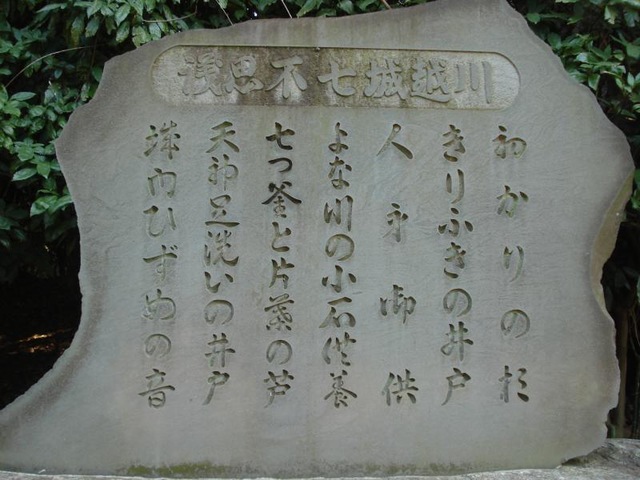 川越城七不思議
初かりの杉
きりふきの井戸
人身御供
よな川の小石供養
七つ釜と片葉の芦
天神足洗いの井戸
城内ひずめの音